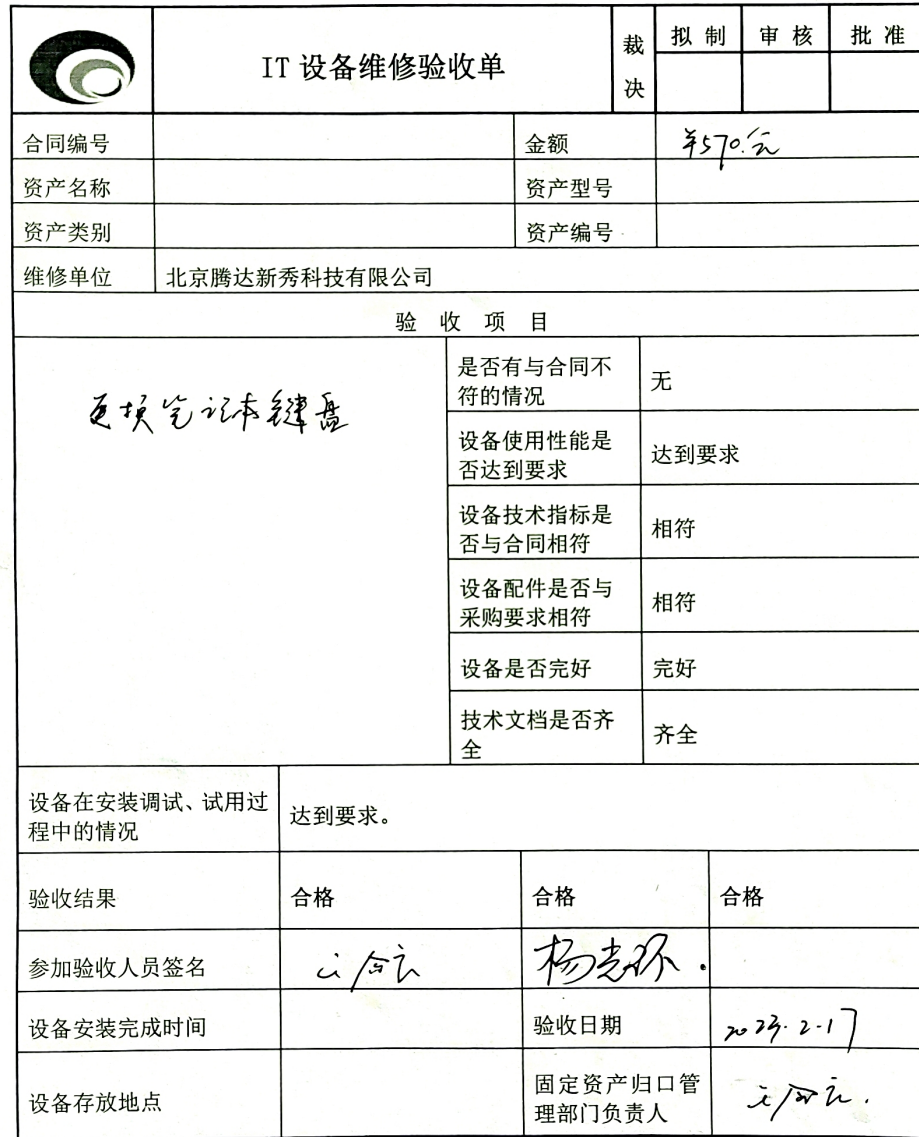 IT 设备维修验收单
裁决
拟 制
审 核
批 准
合同编号
金额
¥570.元
资产名称
资产型号
资产类别
资产编号
维修单位
北京腾达新秀科技有限公司
验 收 项 目
更换笔记本键盘
是否有与合同不
符的情况
无
设备使用性能是
否达到要求
达到要求
设备技术指标是
否与合同相符
相符
设备配件是否与
采购要求相符
相符
设备是否完好
完好
技术文档是否齐
全
齐全
设备在安装调试、试用过
程中的情况
达到要求。
验收结果
合格
合格
合格
参加验收人员签名
设备安装完成时间
验收日期
2023.2.17
设备存放地点
固定资产归口管
理部门负责人